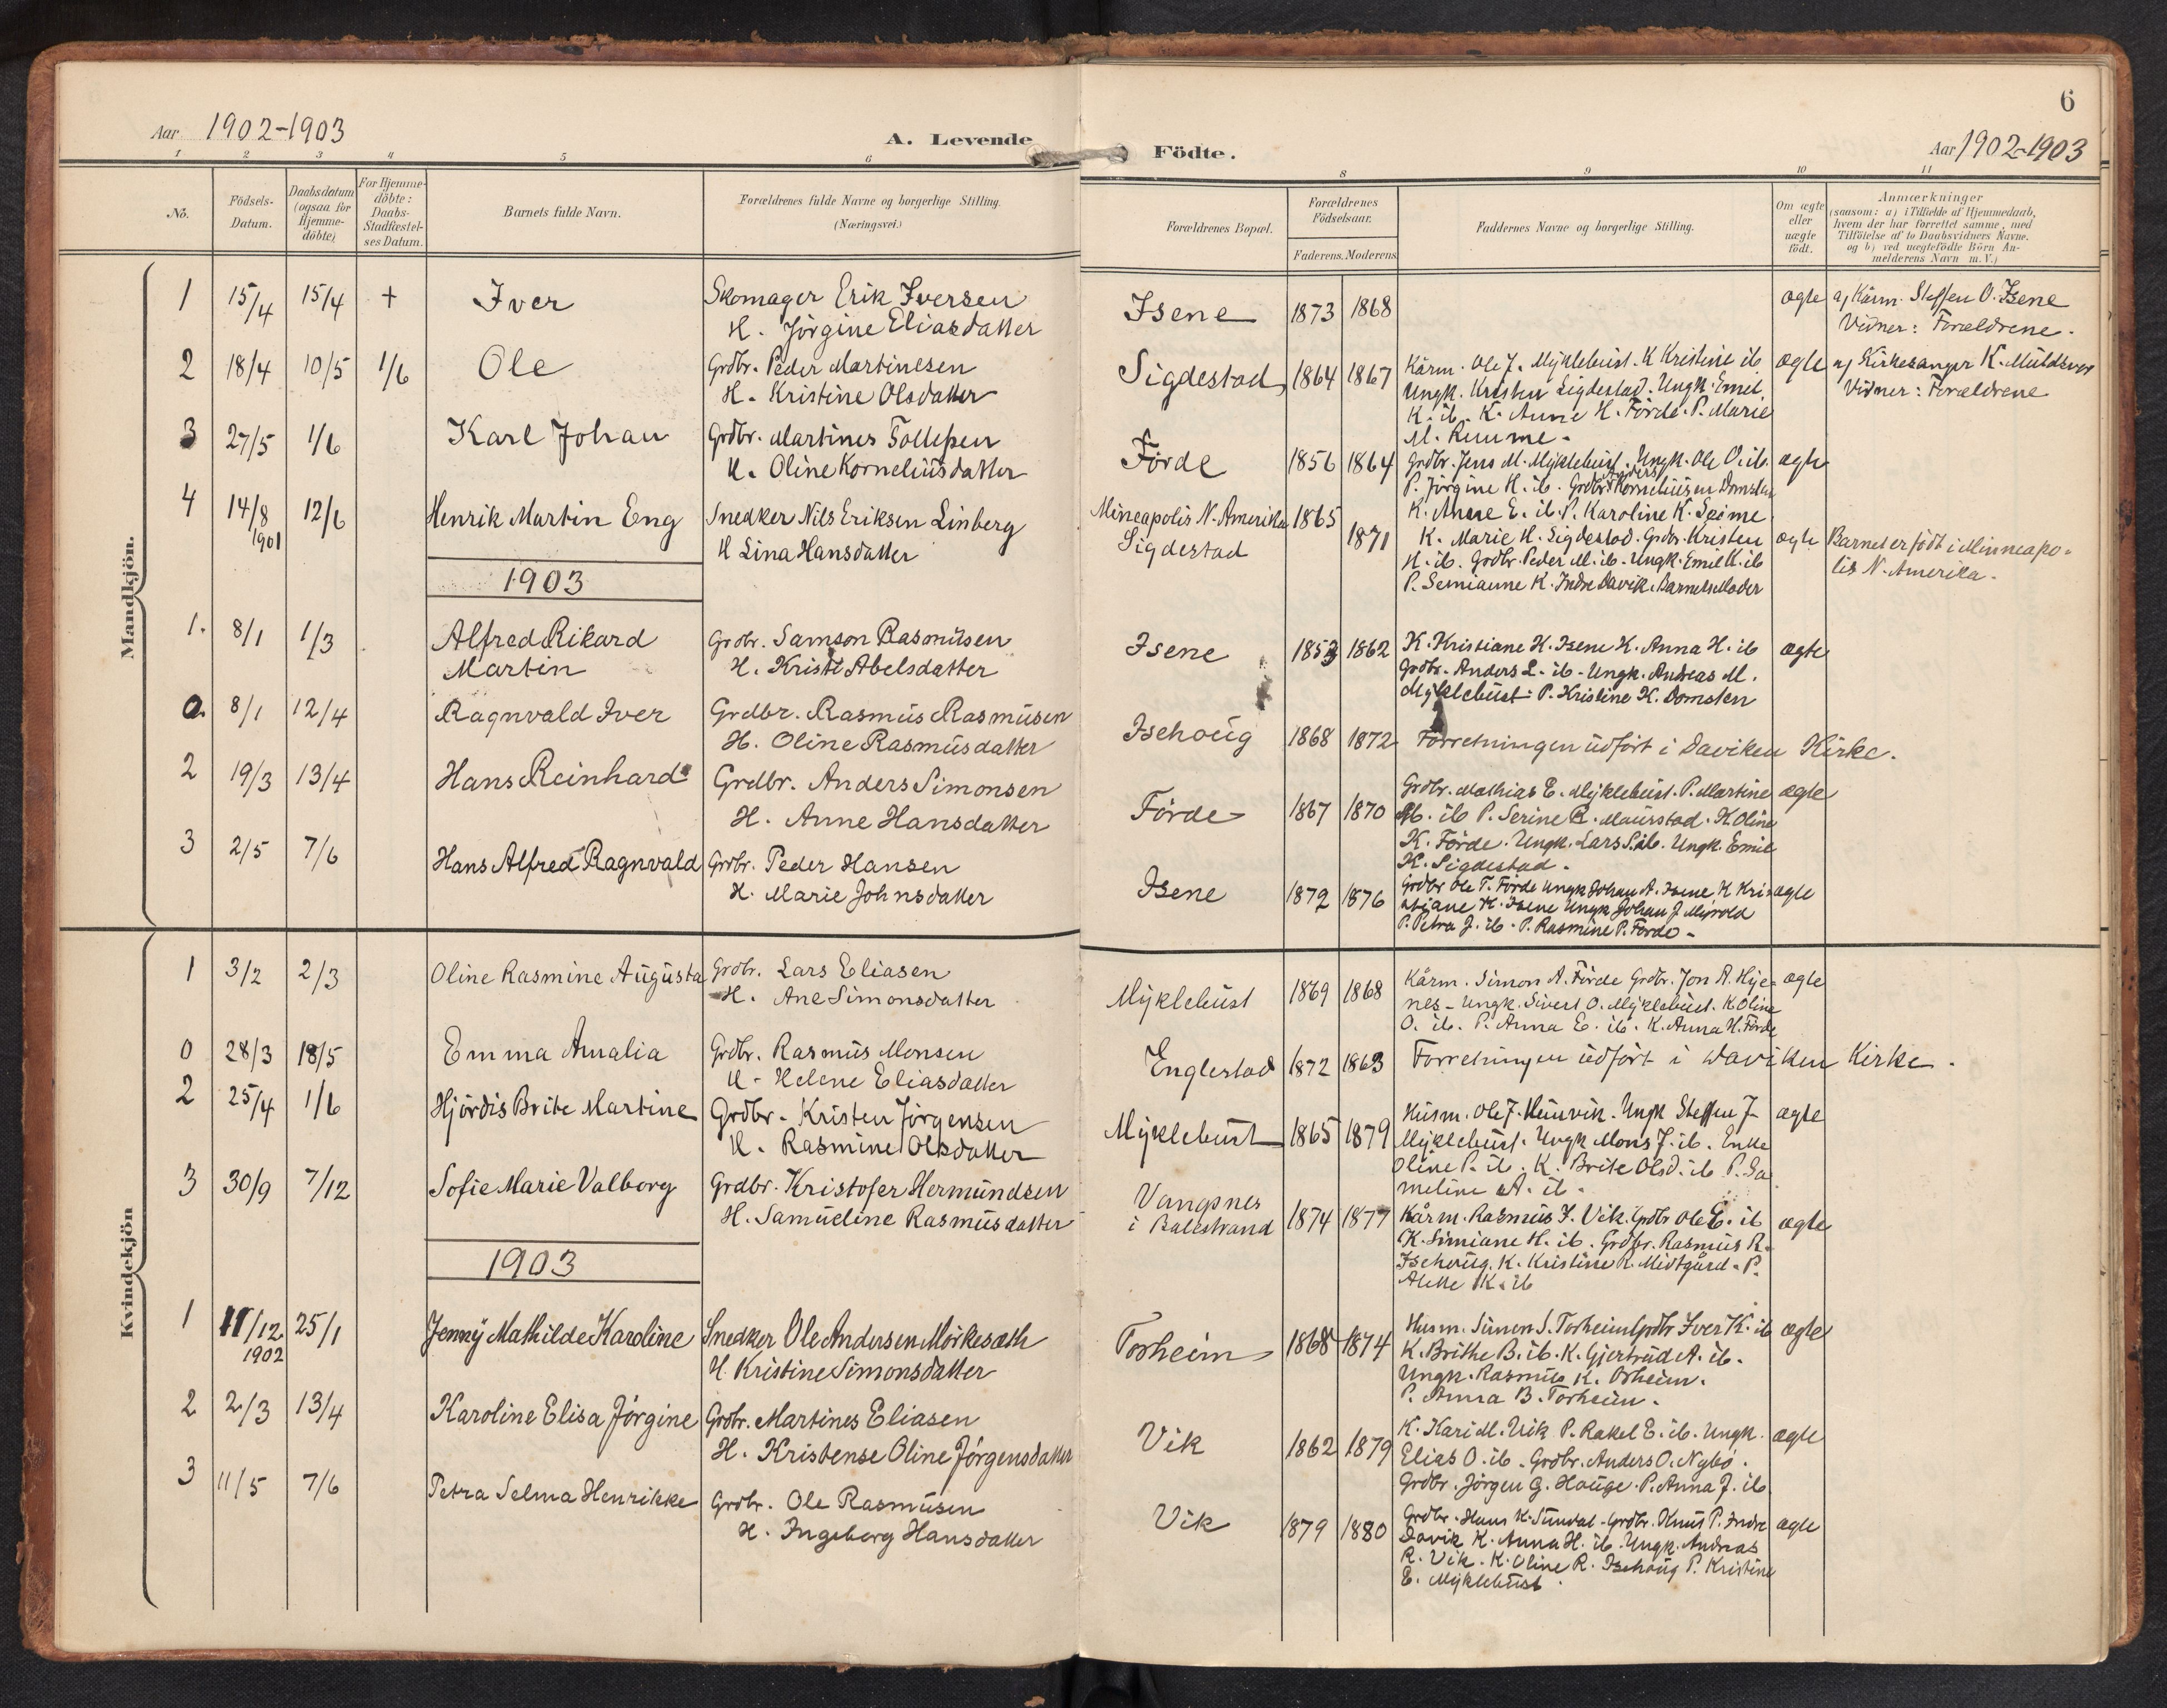 Aar 1902-1903
A. Levende
Födte.
6
Aar 1902-1903
1 2 3 4 5 6
8 9 10 11
No.
Födsels-Datum.
Daabsdatum (ogsaa for Hjemme-döbte)
For Hjemme-döbte: Daabs-Stadfæstel-ses Datum.
Barnets fulde Navn.
Forældrenes fulde Navne og borgerlige Stilling. (Næringsvei.)
Forældrenes Bopæl.
Forældrenes Födselsaar.
Faderens. Moderens
Faddernes Navne og borgerlige Stilling.
Om ægte eller uægte födt.
Anmærkninger
(saasom: a) i Tilfælde af Hjemmedaab,
hvem der har forrettet samme, med
Tilföielse af to Daabsvidners Navne.
og b) ved uægtefödte Börn An-
melderens Navn m.V.)
Mandkjön.
1 15/4 15/4 + Iver
Skomager Erik Iversen
H. Jörgine Eliasdatter
Isene 1873 1868
ægte
a) Kårm. Steffen O. Isene
Vidner: Forældrene.
2 18/4 10/5 1/6 Ole
Grdbr. Peder Martinesen
H. Kristine Olsdatter
Sigdestad 1864 1867
Kårm. Ole J. Myklebust. K Kristine ib
Ungk. Kristen Sigdestad. Ungk. Emil
K. ib. K. Anne H. Förde. P. Marie
M.
ægte
a) Kirkesanger K.
Vidner: Forældrene
3 27/5 1/6 Karl Johan
Grdbr. Martines Tollefsen
H. Oline Korneliusdatter
Förde 1856 1864
Grdbr. Jens M. Myklebust. Ungk. Ole O. ib.
P. Jörgine H. ib. Grdbr. Anders Korneliusen Domsten
K. Anne E. ib. P. Karoline K.
ægte
4 14/8 1901 12/6 Henrik Martin Eng
Snedker Nils Eriksen Linberg
H Lina Hansdatter
Mineapolis N. Amerika 1865
Sigdestad 1871
K. Marie H. Sigdestad. Grdbr. Kristen
H. ib. Grdbr. Peder M. ib. Ungk. Emil K. ib
P. Semianne K. Indre Davik. Barnets Moder
ægte
Barnet er födt i Minneapo-
lis N. Amerika.
1903
1. 8/1 1/3 Alfred Rikard
Martin
Grdbr. Samson Rasmusen
H. Kristi Abelsdatter
Isene 1853 1862
K. Kristiane K. Isene K. Anna H. ib
Grdbr. Anders L. ib. Ungk. Andreas M.
Myklebust. P. Kristine K. Domsten
ægte
0. 8/1 12/4 Ragnvald Iver
Grdbr. Rasmus Rasmusen
H. Oline Rasmusdatter
Isehoug 1868 1872
Forretningen udfört i Daviken Kirke.
2 19/3 13/4 Hans Reinhard
Grdbr. Anders Simonsen
H. Anne Hansdatter
Förde 1867 1870
Grdbr. Mathias E. Myklebust. P. Martine
M. ib P. Serine R. Maurstad. K Oline
K. Förde. Ungk. Lars S. ib. Ungk. Emil
K. Sigdestad.
ægte
3 2/5 7/6 Hans Alfred Ragnvald
Grdbr. Peder Hansen
H. Marie Johnsdatter
Isene 1872 1876
Grdbr Ole T. Förde Ungk Johan A. Isene K Kris-
tiane H. Isene Ungk Johan J Myrold
P. Petra J. ib. P. Rasmine P. Förde.
ægte
Kvindekjön
1 3/2 2/3 Oline Rasmine Augusta
Grdbr. Lars Eliasen
H. Ane Simonsdatter
Myklebust 1869 1868
Kårm. Simon A. Förde Grdbr. Jon A. Hye-
nes. Ungk. Sivert O. Myklebust. K. Oline
O. ib. P. Anna E. ib. K. Anna H. Förde
ægte
0 28/3 18/5 Emma Amalia
Grdbr. Rasmus Monsen
H. Helene Eliasdatter
Englestad 1872 1863
Forretningen udfört i Daviken Kirke.
2 25/4 1/6 Hjördis Brite Martine
Grdbr. Kristen Jörgensen
H. Rasmine Olsdatter
Myklebust 1865 1879
Husm. Ole J. Ungk Steffen J
Myklebust. Ungk Mons J. ib. Enke
Oline P. ib. K. Brite Olsd. ib P. Sa
meline A. ib.
ægte
3 30/9 7/12 Sofie Marie Valborg
Grdbr. Kristofer Hermundsen
H. Samueline Rasmusdatter
Vangsnes
i Balestrand 1874 1877
Kårm. Rasmus I. Vik. Grdbr Ole E. ib
K. Simiane H. ib. Grdbr. Rasmus R.
Isehoug. K. Kristine R. Midtgård. P.
K. ib
ægte
1903
1 11/12 1902 25/1 Jenny Mathilde Karoline
Snedker Ole Andersen Mörkesæth
H. Kristine Simonsdatter
Torheim 1868 1874
Husm. Simon S. Torheim Grdbr Iver K. ib
K. Brithe B. ib. K. Gjertrud A. ib.
Ungk. Rasmus K. Orheim.
P. Anna B. Torheim.
ægte
2 2/3 13/4 Karoline Elisa Jörgine
Grdbr. Martines Eliasen
H. Kristense Oline Jörgensdatter
Vik 1862 1879
K. Kari M. Vik P. Rakel E. ib. Ungk.
Elias O. ib. Grdbr. Anders O. Nybö.
Grdbr. Jörgen G. Hauge. P. Anna J. ib
ægte
3 11/5 7/6 Petra Selma Henrikke
Grdbr. Ole Rasmusen
H. Ingeborg Hansdatter
Vik 1879 1880
Grdbr. Hans K. Sundal. Grdbr. Knut P. Indre
Davik K. Anna H. ib. Ungk. Andreas
R. Vik. K. Oline R. Isehoug P. Kristine
E. Myklebust.
ægte